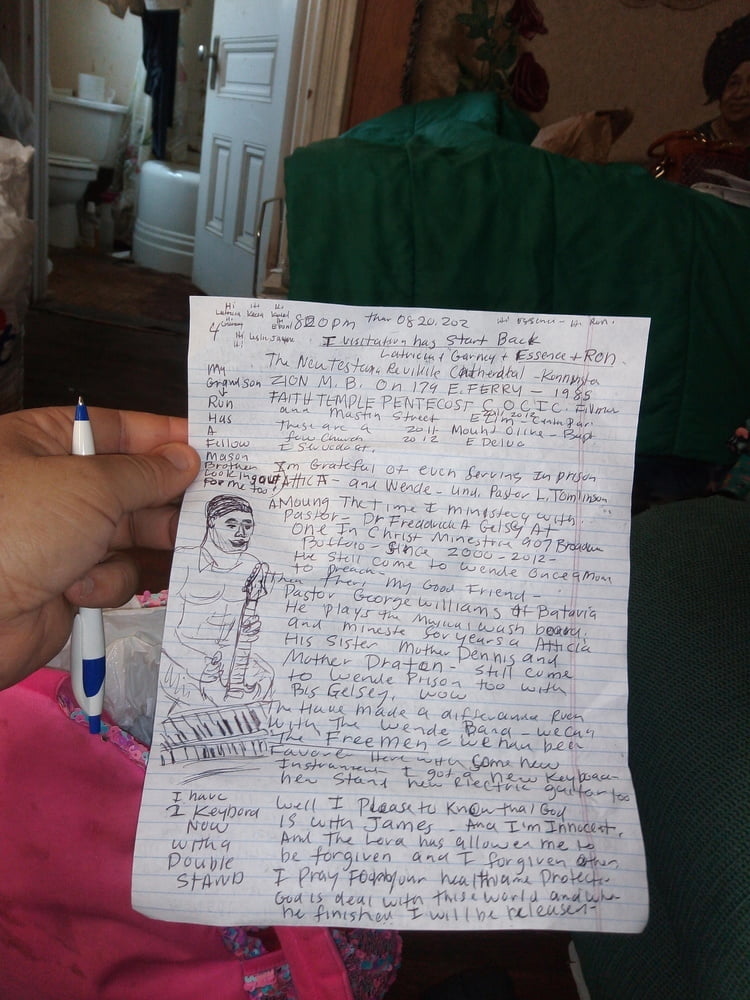 Hi Hi Hi
8:20pm thur 08.20.202 Hi Essence - Hi Ron.
Hi Leslie
I visitation has Start Back
Latricia + Garney + Essence + Ron.
The New Testana Revilile Cathedral -
ZION M.B. On 179 E. FERRY - 1985
FAITH TEMPLE PENTECOST C.O.C.I.C.
and Mastin Street 2012
These are a 2011 Mount Olive - Bapt.
few Church 2012 E Delva
I Served at.
My
Grandson
Run
Has
A
Fillow
Mason
Brother
Looking out
For me too!
I'm Grateful of each Serving In prison
ATTICA - and Wende - und. Pastor L. Tomlinson
AMoung The time I ministery with
Pastor - Dr Frederick A Gelsey At
One In Christ Minestrie 907 Broadwa
Buffalo - Since 2000-2012-
He Still Come to Wende Once a Mon
to preach
Then Theri My Good Friend -
Pastor George Williams Of Batavia
He plays the Musical wash board.
and mineste for years a Atticia
His Sister Mother Dennis and
Mother Draton - Still come
to Wende Prison too with
Bis Gelsey. wow
The Have made a differance Even
With The Wende Band - we can
The Free Men & We han been
Favore Here with Some new
Instrument I got a new Keyboard
hew Stand new Electric guitar too
I have
2 Keybora
Now
with a
Double
STAND
Well I Please to Know that God
Is with James - And I'm Innocent,
And The Lord has allower me to
be forgiven and I forgiven other,
I Pray For your health ame Protect-
God is deal with these world and whe
he finished I will be released-